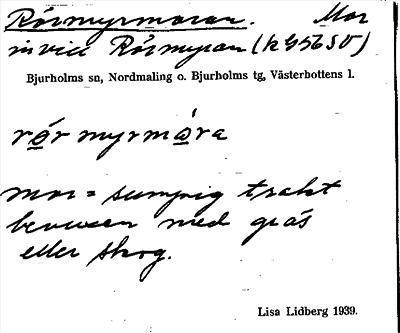 Rörmyrmoran. Mor
invid Rörmyran (k G56 SV)
Bjurholms sn, Nordmaling o. Bjurholms tg, Västerbottens l.
rǿr myrmára
mor = sumpig trakt
bevuxen med gräs
eller skog.
Lisa Lidberg 1939.